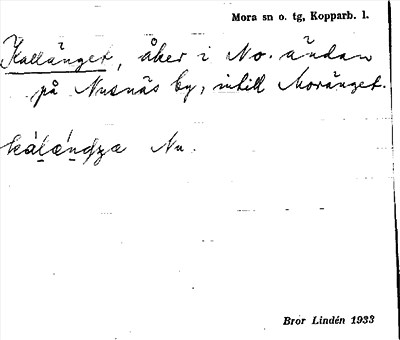 Mora sn o. tg, Kopparb. l.
Kallänget, åker i No. ändan
på Nusnäs by, intill Moränget.
Nu.
Bror Lindén 1933